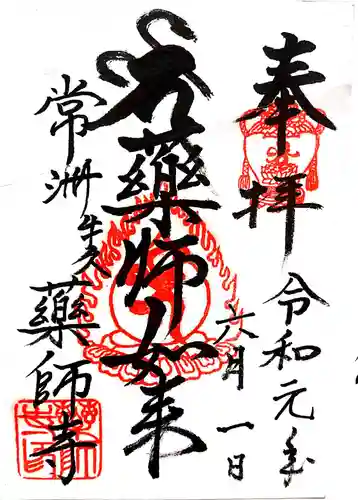 奉拝
令和元年
六月一日
薬師如来
常洲牛久
薬師寺